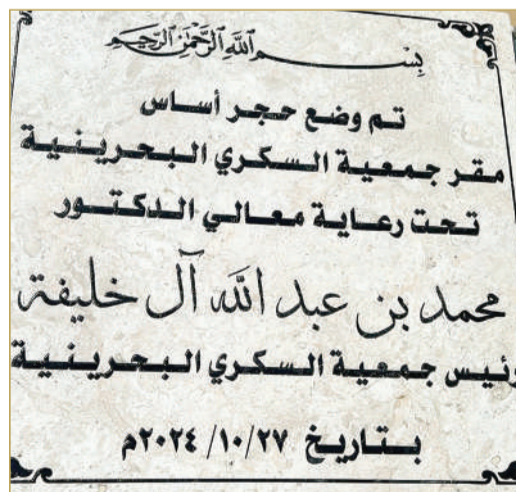 بسم الله الرحمن الرحيم
تم وضع حجر أساس
مقر جمعية السكري البحرينية
تحت رعاية معالي الدكتور
محمد بن عبد الله آل خليفة
رئيس جمعية السكري البحرينية
بتاريخ ٢٠٢٤/١٠/٢٧م